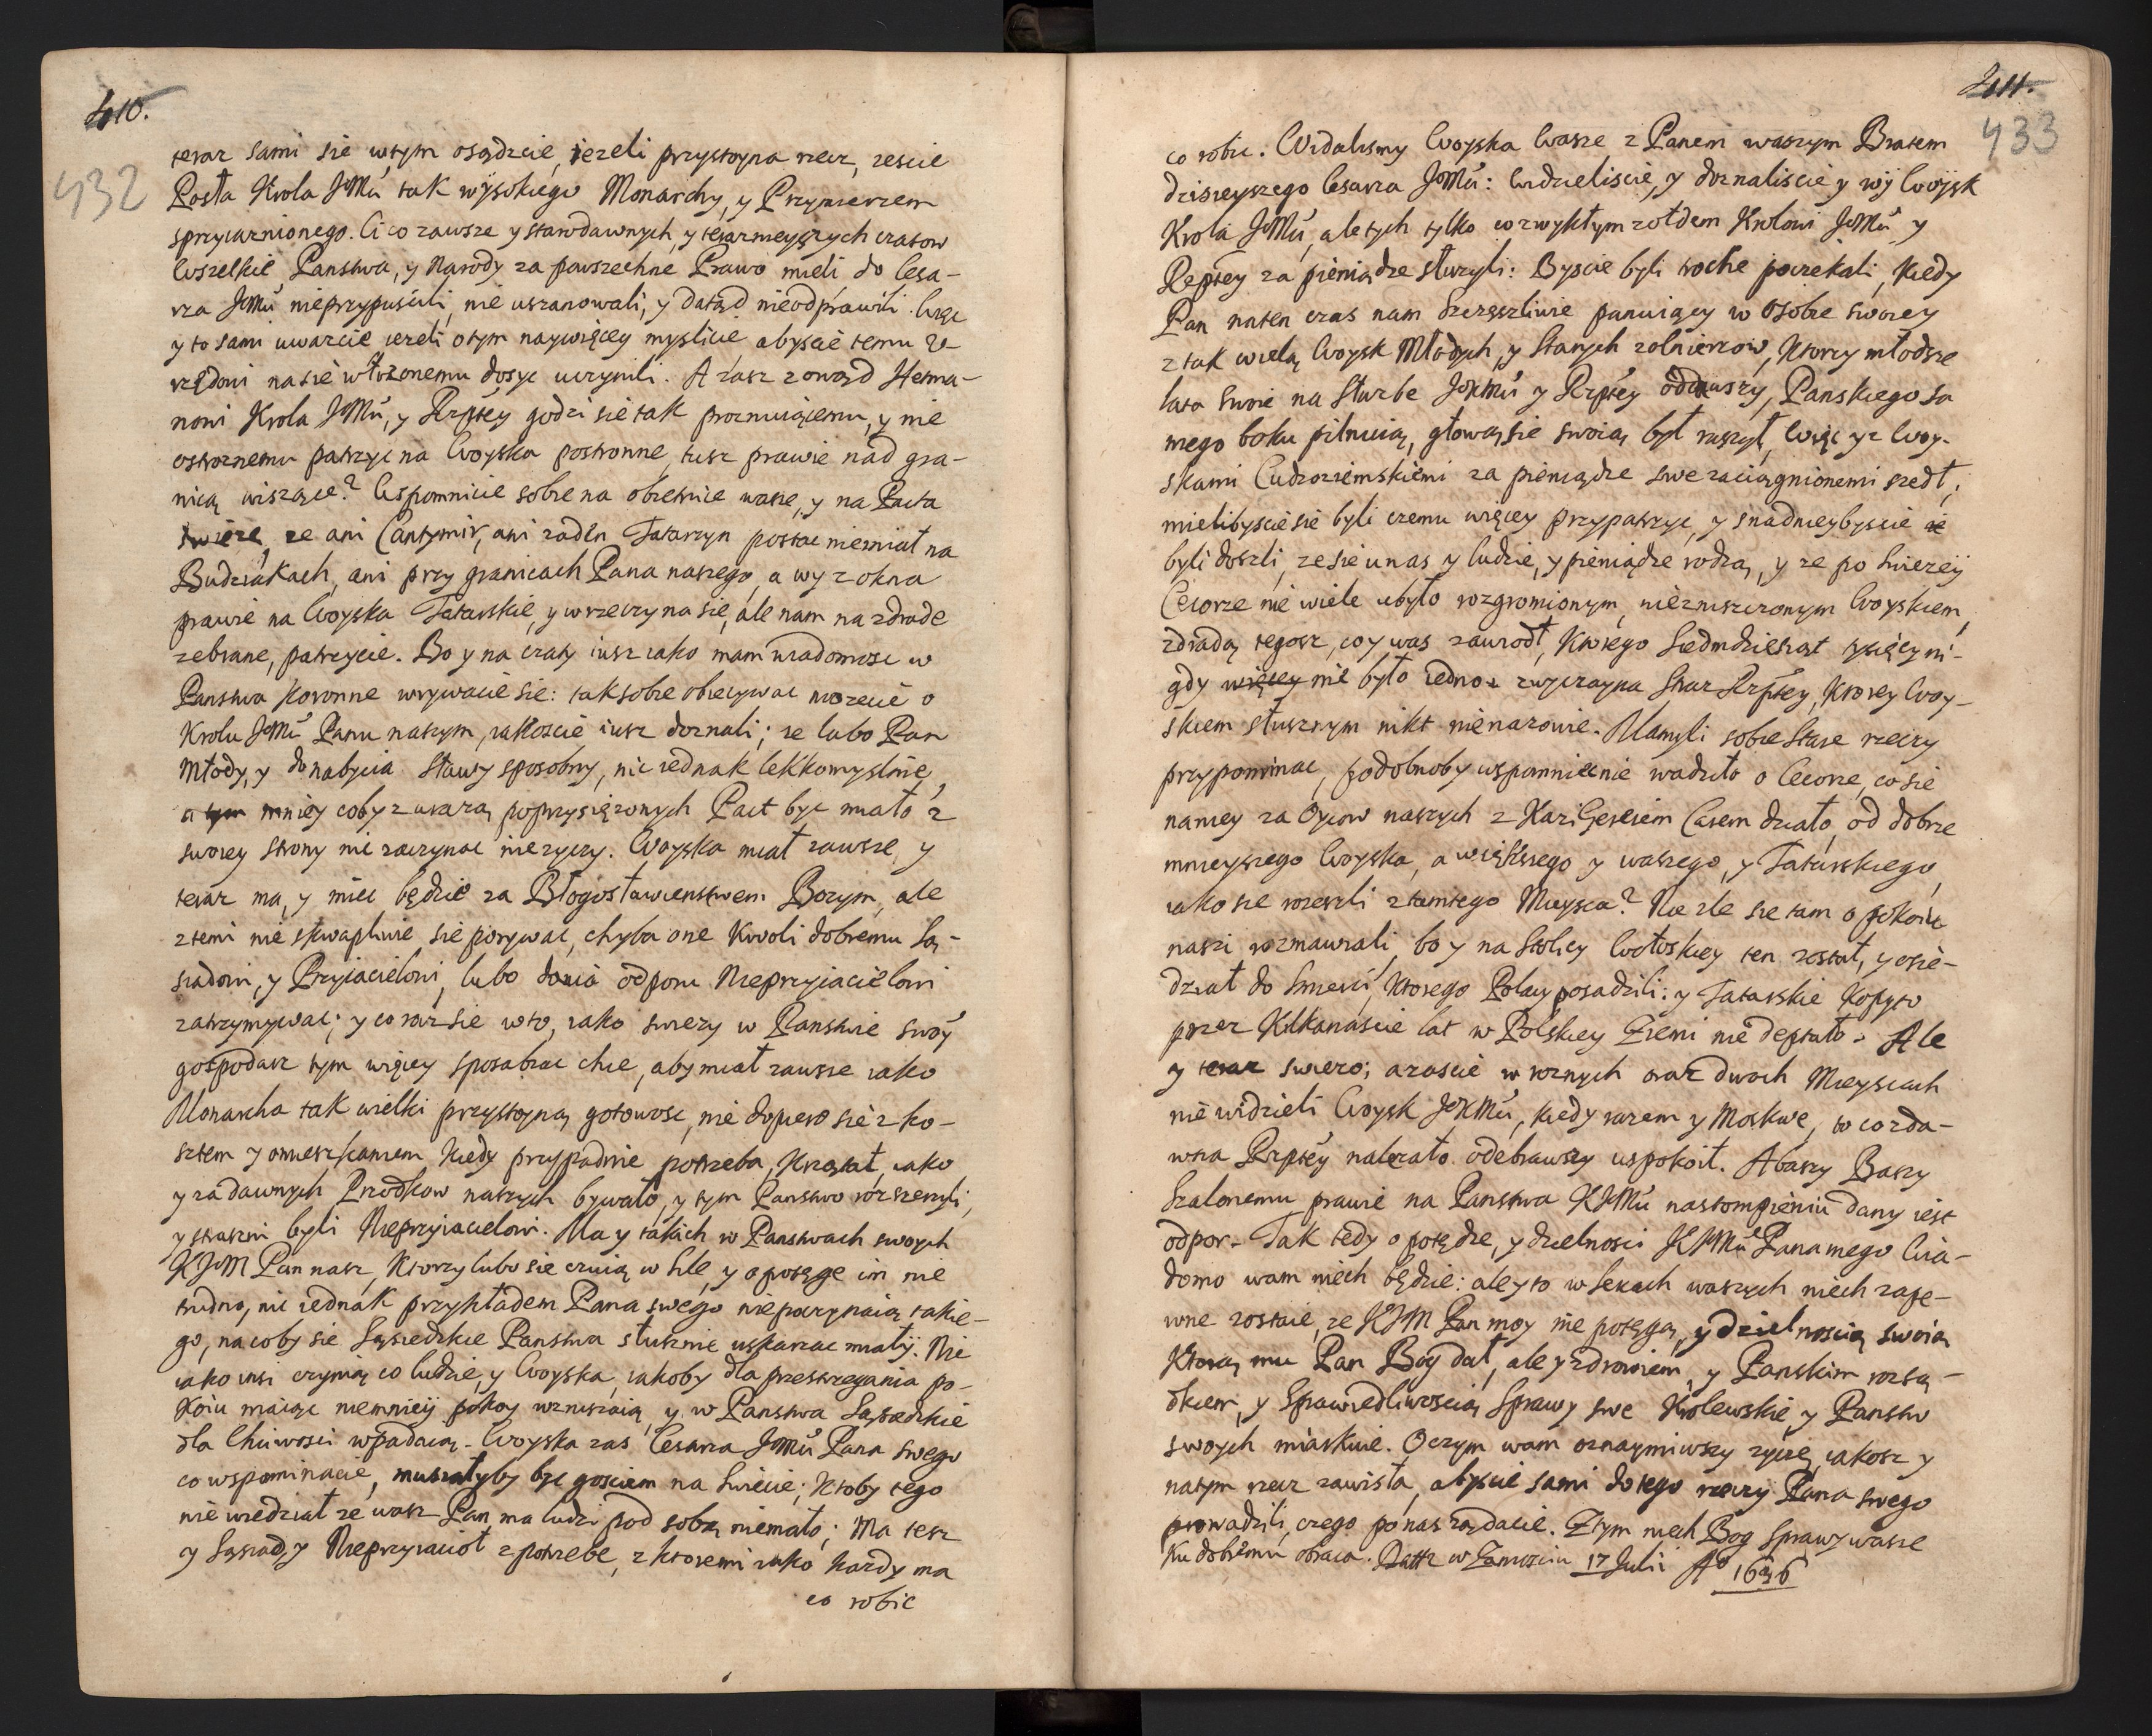 410.
432
teraz sami sie wtym osądzcie, iezeli przystoyna rzecz, zescie
Posła Krola JMći tak wysokiego Monarchy, y Przymierzem
sprzyiaznionego. Ci co zawsze y starodawnych, y teraznieyszych czasow
Wszelkie Panstwa, y Narody za powszechne Prawo mieli do Cesa-
rza JMći nieprzypuscili, nie uszanowali, y dotąd nieodprawili. Więc
y to sami uwazcie iezeli otym naywięcey myslicie abyscie temu U-
rzędowi nasie włozonemu dosyc uczynili. A zasz zowąd Hetma-
nowi Krola JMći, y Rzptey godzi sie tak prozniuiącemu, y nie
ostroznemu patrzyc na Woyska postronne, tusz prawie nad gra-
nicą wiszące? Wspomnicie sobie na obietnice wasze, y na Pacta
swieze, ze ani Cantymir, ani zaden Tatarzyn postac niemiał na
Budziakach, ani przy granicach Pana naszego, a wy z okna
prawie na Woyska Tatarskie, y wrzeczy na sie, ale nam na zdrade
zebrane, patrzycie. Bo y na czaty iusz iako mam wiadomosc w
Panstwa Koronne wrywacie sie: tak sobie obiecywac mozecie o
Krolu JMći Panu naszym, iakoscie iusz doznali; ze lubo Pan
Młody, y do nabycia Sławy sposobny, nic iednak lekkomyslnie,
mniey coby z urazą poprzysięzonych Pact byc miało z
swoiey strony nie zaczynac niezyczy. Woyska miał zawsze, y
teraz ma, y miec będzie za Błogosławienstwem Bozym, ale
ztemi nie skwapliwie sie porywac, chyba one kwoli dobremu Są-
siadowi, y Przyiacielowi, lubo dania odporu Nieprzyiacielowi
zatrzymywac; y coraz sie w to, iako swiezy w Panstwie swoy
gospodarz tym więcey sposabiac chce, aby miał zawsze iako
Monarcha tak wielki przystoyną gotowosc, nie dopiero sie z ko-
sztem y omieszkaniem kiedy przypadnie potrzeba, Krzątał, iako
y za dawnych Przodkow naszych bywało, y tym Panstwo rozszerzyli,
y straszni byli Nieprzyiacielowi. Ma y takich w Panstwach swoych
KJM Pan nasz, Ktorzy lubo sie czuią w Sile, y o potęge im nie
trudno, nic iednak przykładem Pana swego niepoczynaią takie-
go, na coby sie Sąsiedzkie Panstwa słusznie uskarzac miały. Nie
iako insi czynią co ludzie, y Woyska, iakoby dla przestrzegania po-
koiu maiąc niemniey pokoy wzruszaią, y w Panstwa Sąsiedzkie
dla Chciwosci wpadaią. Woyska zas Cesarza JMći Pana swego
co wspominacie, musiałby byc gosciem na Swiecie, Ktoby tego
nie wiedział ze wasz Pan ma ludzi pod sobą niemało; Ma tesz
y Sąsiad, y Nieprzyiacioł z potrzebe, z ktoremi iako kazdy ma
co robic
411.
433
co robic. Widalismy Woyska Wasze z Panem waszym Bratem
dzisieyszego Cesarza JMći: widzieliscie, y doznaliscie y wy Woysk
Krola JMći, ale tych tylko co zwykłym zołdem Krolowi JMći y
Rzptey za pieniądze słuzyli: Byscie byli troche poczekali, kiedy
Pan naten czas nam Szczęszliwie panuiący w Osobie swoiey
z tak wielą Woysk Młodych, y Starych zolnierzow, Ktorzy młodsze
lata swoie na Słuzbe JKMći y Rzptey oddawszy, Panskiego Sa
mego boku pilnuią, głową sie swoią był ruszył, Więc y z Woy-
skami Cudzoziemskiemi za pieniądze swe zaciągnionemi szedł,
mielibyscie sie byli czemu więcey przypatrzyc, y snadnieybyscie
byli doszli, ze sie u nas y ludzie, y pieniądze rodzą, y ze po swiezey
Cecorze nie wiele ubyło rozgromionym, nie zniszczonym Woyskiem,
zdradą tegosz, co y was zawiodł, Ktorego Siedmdziesiąt tysięcy ni-
gdy nie było iedno zwyczayna Straz Rzptey, Ktorey Woy-
skiem słusznym nikt nienazowie. Mamyli sobie Stare rzeczy
przypominac, podobnoby wspomniecnie wadziło o Cecorze, co sie
na niey za Oycow naszych z Kazi Gereiem Carem działo, od dobrze
mnieyszego Woyska, a większego y waszego, y Tatarskiego,
iako sie rozeszli z tamtego Mieysca? Nie zle sie tam o pokoiu
naszi rozmawiali, bo y na Stolicy Wołoskiey ten został, y osie-
dział do Smierci, Ktorego Polacy posadzili: y Tatarskie Kopyto
przez Kilkanascie lat w Polskiey Ziemi nie deptało. Ale
y teraz swiezo; azascie w roznych oraz dwoch Mieyscach
nie widzieli Woysk JKMći, kiedy razem y Moskwe, to co zda-
wna Rzptey nalezało odebrawszy uspokoił. Abazy Baszy
Szalonemu prawie na Panstwa KJMći nastompieniu dany iest
odpor. Tak tedy o potędze, y dzielnosci KJMći Pana mego Wia-
domo wam niech będzie: ale y to w Sercach waszych niech zape-
wne zostaie, ze KJM Pan moy nie potęgą, y dzielnoscią swoią
Ktorą mu Pan Bog dał, ale y zdrowiem, y Panskim rozsą-
dkiem, y Sprawiedliwoscią Sprawy swe Krolewskie, y Panstw
swoych miarkuie. Oczym wam oznaymiwszy zyczę, iakosz y
natym rzecz zawisła, abyscie sami do tego rzeczy Pana swego
prowadzili, czego po nas ządacie. Ztym niech Bog Sprawy wasze
ku dobremu obraca. Dattz w Zamosciu 17 Juli Aº 1636